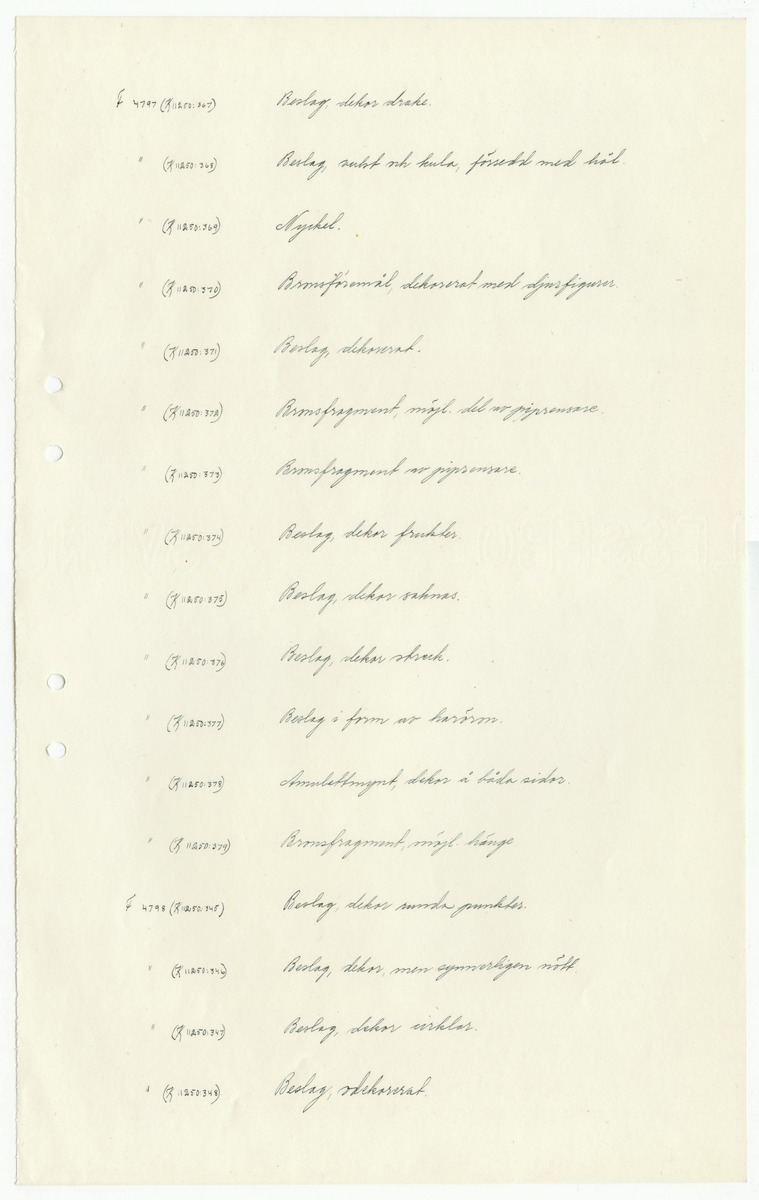 F 4797 (K 11250:367) Beslag, dekor drake.
" (K 11250:368) Beslag, och kula, försedd med hål.
" (K 11250:369) Nyckel.
" (K 11250:370) Bronsföremål, dekorerat med djurfigurer.
" (K 11250:371) Beslag, dekorerat.
" (K 11250:372) Bronsfragment, möjl. del av piprensare.
" (K 11250:373) Bronsfragment av piprensare.
" (K 11250:374) Beslag, dekor frukter.
" (K 11250:375) Beslag, dekor saknas.
" (K 11250:376) Beslag, dekor streck.
" (K 11250:377) Beslag i form av haröron.
" (K 11250:378) Amulettmynt, dekor å båda sidor.
" (K 11250:379) Bronsfragment, möjl. hänge
F 4798 (K 11250:345) Beslag, dekor runda punkter.
" (K 11250:346) Beslag, dekor, men synnerligen nött.
" (K 11250:347) Beslag, dekor cirklar.
" (K 11250:348) Beslag, odekorerat.